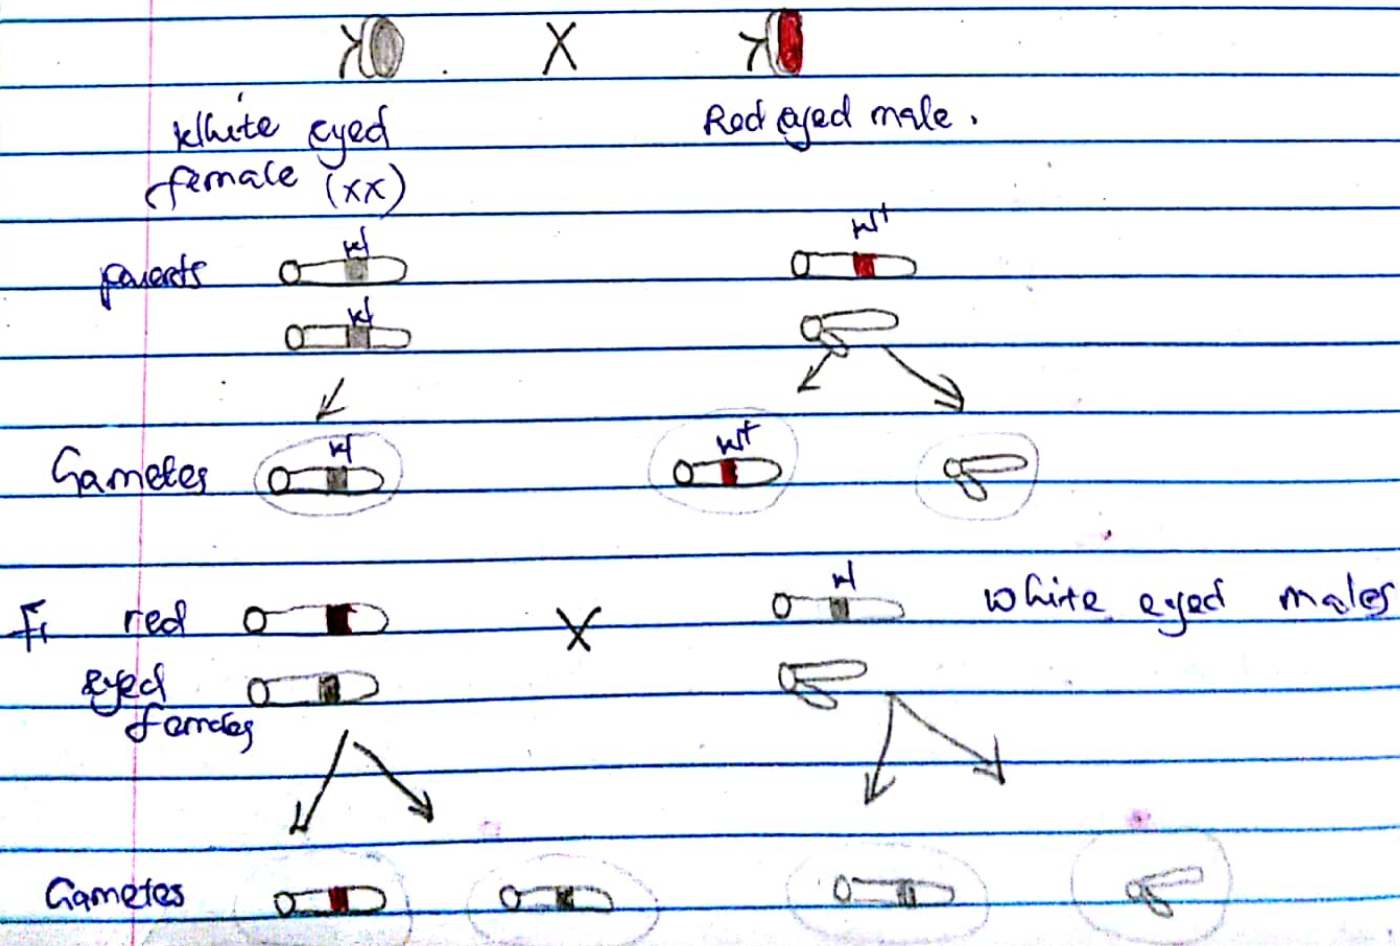 X
White eyed
female (XX)
Red eyed male.
parents
w
w+
w
Gametes
w
w+
F1 red
eyed
females
X
w
white eyed males
Gametes